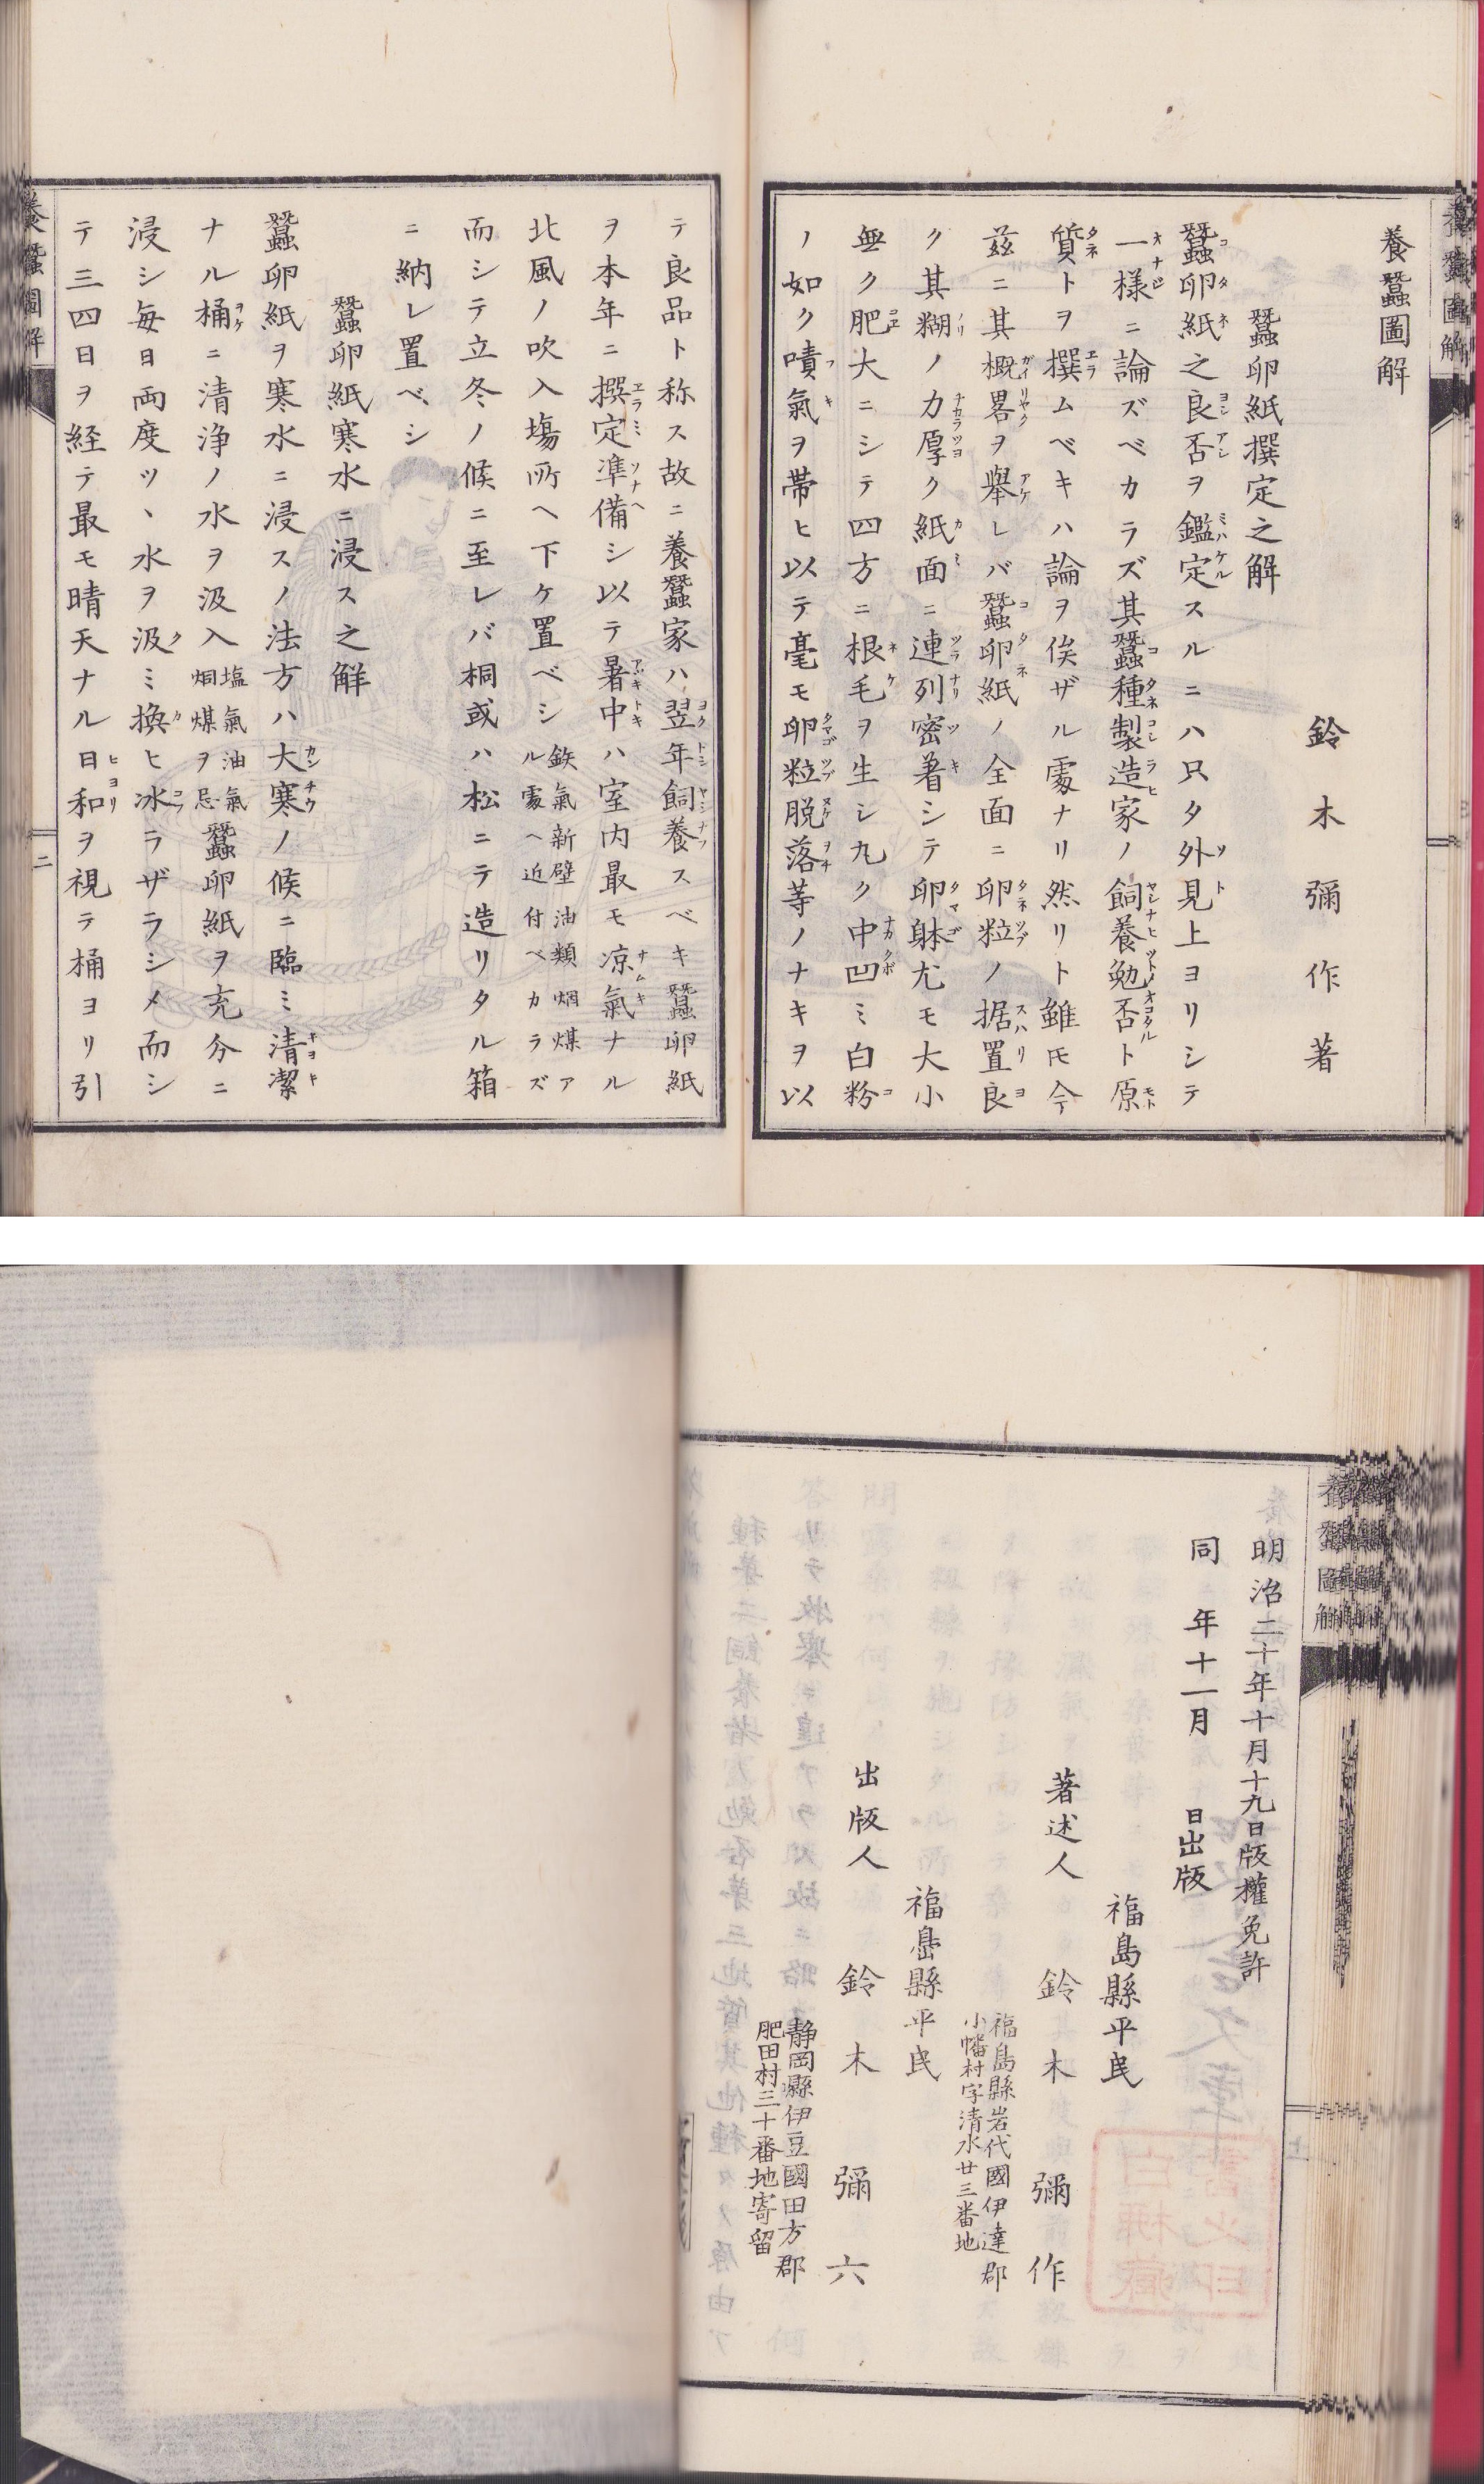 養蠶圖解
養蠶圖解
鈴木彌作著
蠶卵紙撰定之解
蠶卵紙之良否ヲ鑑定スルニハ只タ外見上ヨリシテ
一様ニ論ズベカラズ其蠶種製造家ノ飼養勉否ト原
質トヲ撰ムベキハ論ヲ俟ザル䖏ナリ然リト雖モ今
茲ニ其概畧ヲ擧レバ蠶卵紙ノ全面ニ卵粒ノ据置良
ク其糊ノ力厚ク紙面ニ連列密着シテ卵躰尤モ大小
無ク肥大ニシテ四方ニ根毛ヲ生シ丸ク中凹ミ白粉
ノ如ク噴氣ヲ帶ヒ以テ毫モ卵粒脱落等ノナキヲ以
テ良品ト称ス故ニ養蠶家ハ翌年飼養スベキ蠶卵紙
ヲ本年ニ撰定凖備シ以テ暑中ハ室内最モ凉氣ナル
北風ノ吹入塲所ヘ下ケ置ベシ鉄氣新壁油類烟煤アル䖏ヘ近付ベカラズ
而シテ立冬ノ候ニ至レバ桐或ハ松ニテ造リタル箱
ニ納レ置ベシ
蠶卵紙寒水ニ浸ス之解
蠶卵紙ヲ寒水ニ浸スノ法方ハ大寒ノ候ニ臨ミ清潔
ナル桶ニ清浄ノ水ヲ汲入塩氣油氣烟煤ヲ忌蠶卵紙ヲ充分ニ
浸シ毎日両度ツヽ水ヲ汲ミ換ヒ氷ラザラシメ而シ
テ三四日ヲ経テ最モ晴天ナル日和ヲ視テ桶ヨリ引
養蠶圖解
二
養蠶圖解
明治二十年十月十九日版權免許
同年十一月 日出版
福島縣平民
著述人 鈴木彌作
福島縣岩代國伊達郡
小幡村字清水廿三番地
福島縣平民
出版人 鈴木彌六
静岡縣伊豆國田方郡
肥田村三十番地寄留